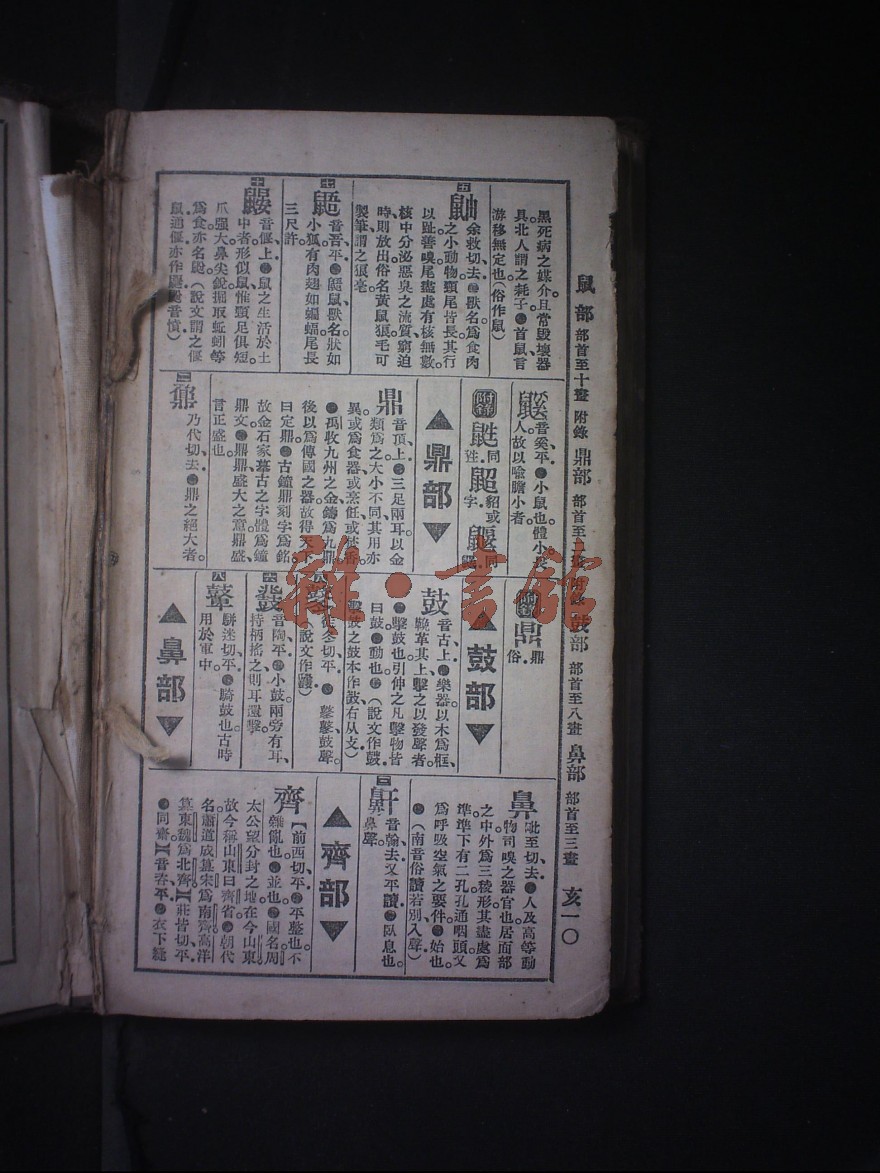 鼠部 部首至十畫 附錄 鼎部 部首至 附錄 鼓部 部首至八畫 鼻部 部首至三畫 亥一〇
黑死病之媒介且常毀壞器
具北人謂之耗子●首鼠言
游移無定也(俗作鼡)
五
鼬
余救切去●獸名爲食肉
之小動物頸尾皆長其行
以趾善嗅尾盡處有核無數
核中分泌惡臭之流質窮迫
時則放出俗名黃鼠狼毛可
製筆謂之狼毫
七
鼯
音吾平●鼯鼠獸名狀如
小狐有肉翅如蝙蝠尾長
三尺許
十
鼴
音偃上●鼠之生活於土
中者形似鼠惟頸足俱短
爪强大鼻尖銳掘取蚯蚓等
爲食亦名鼢(說文謂之偃
鼠通偃亦作鼹鼢音憤)
鼷
音奚平●小鼠也體小
人故以喻膽小者
附錄
鼪
同
鼦
貂或
字
同
▲鼎部▼
鼎
音頂上●三足兩耳以金
類爲之大小不同其用亦
異或爲食器或烹飪或焚香
●禹收九州之金鑄爲九鼎
後以爲傳國之器故得天下
曰定鼎●古鐘鼎刻字爲銘
故金石家摹古之字體爲鐘
鼎文●鼎鼎盛大之意鼎盛
言正盛也
二
鼐
乃代切去●鼎之絕大者
附錄
鼎
俗
▲鼓部▼
鼓
音古上●樂器以木爲框
䩞革其上擊之以發聲者
●擊鼓也引伸之凡擊物皆
曰鼓●動也●(說文作鼓
擊鼓之鼓本作鼓右从攴)
徒冬切平●鼕鼕鼓聲
六
鼗
音陶平●小鼓兩旁有耳
持柄搖之則耳還擊
八
鼙
駢迷切平●騎鼓也古時
用於軍中
▲鼻部▼
鼻
毗至切去●人及高等動
物司嗅之器官也居面部
之中外爲三稜形其盡處爲
準準下有二孔孔通咽頭又
爲呼吸空氣之要件●始也
●(南音俗讀若別入聲)
三
鼾
音翰去又平讀●臥息也
鼻聲
▲齊部▼
齊
【前西切平●平整也不
雜亂也●並也●國名周
太公望分封之地在今山東
故今稱山東曰齊省●朝代
名蕭道成篡宋爲南齊高洋
篡東魏爲北齊【莊皆切平
●同齋【音咨平●衣下縫
雜·書館